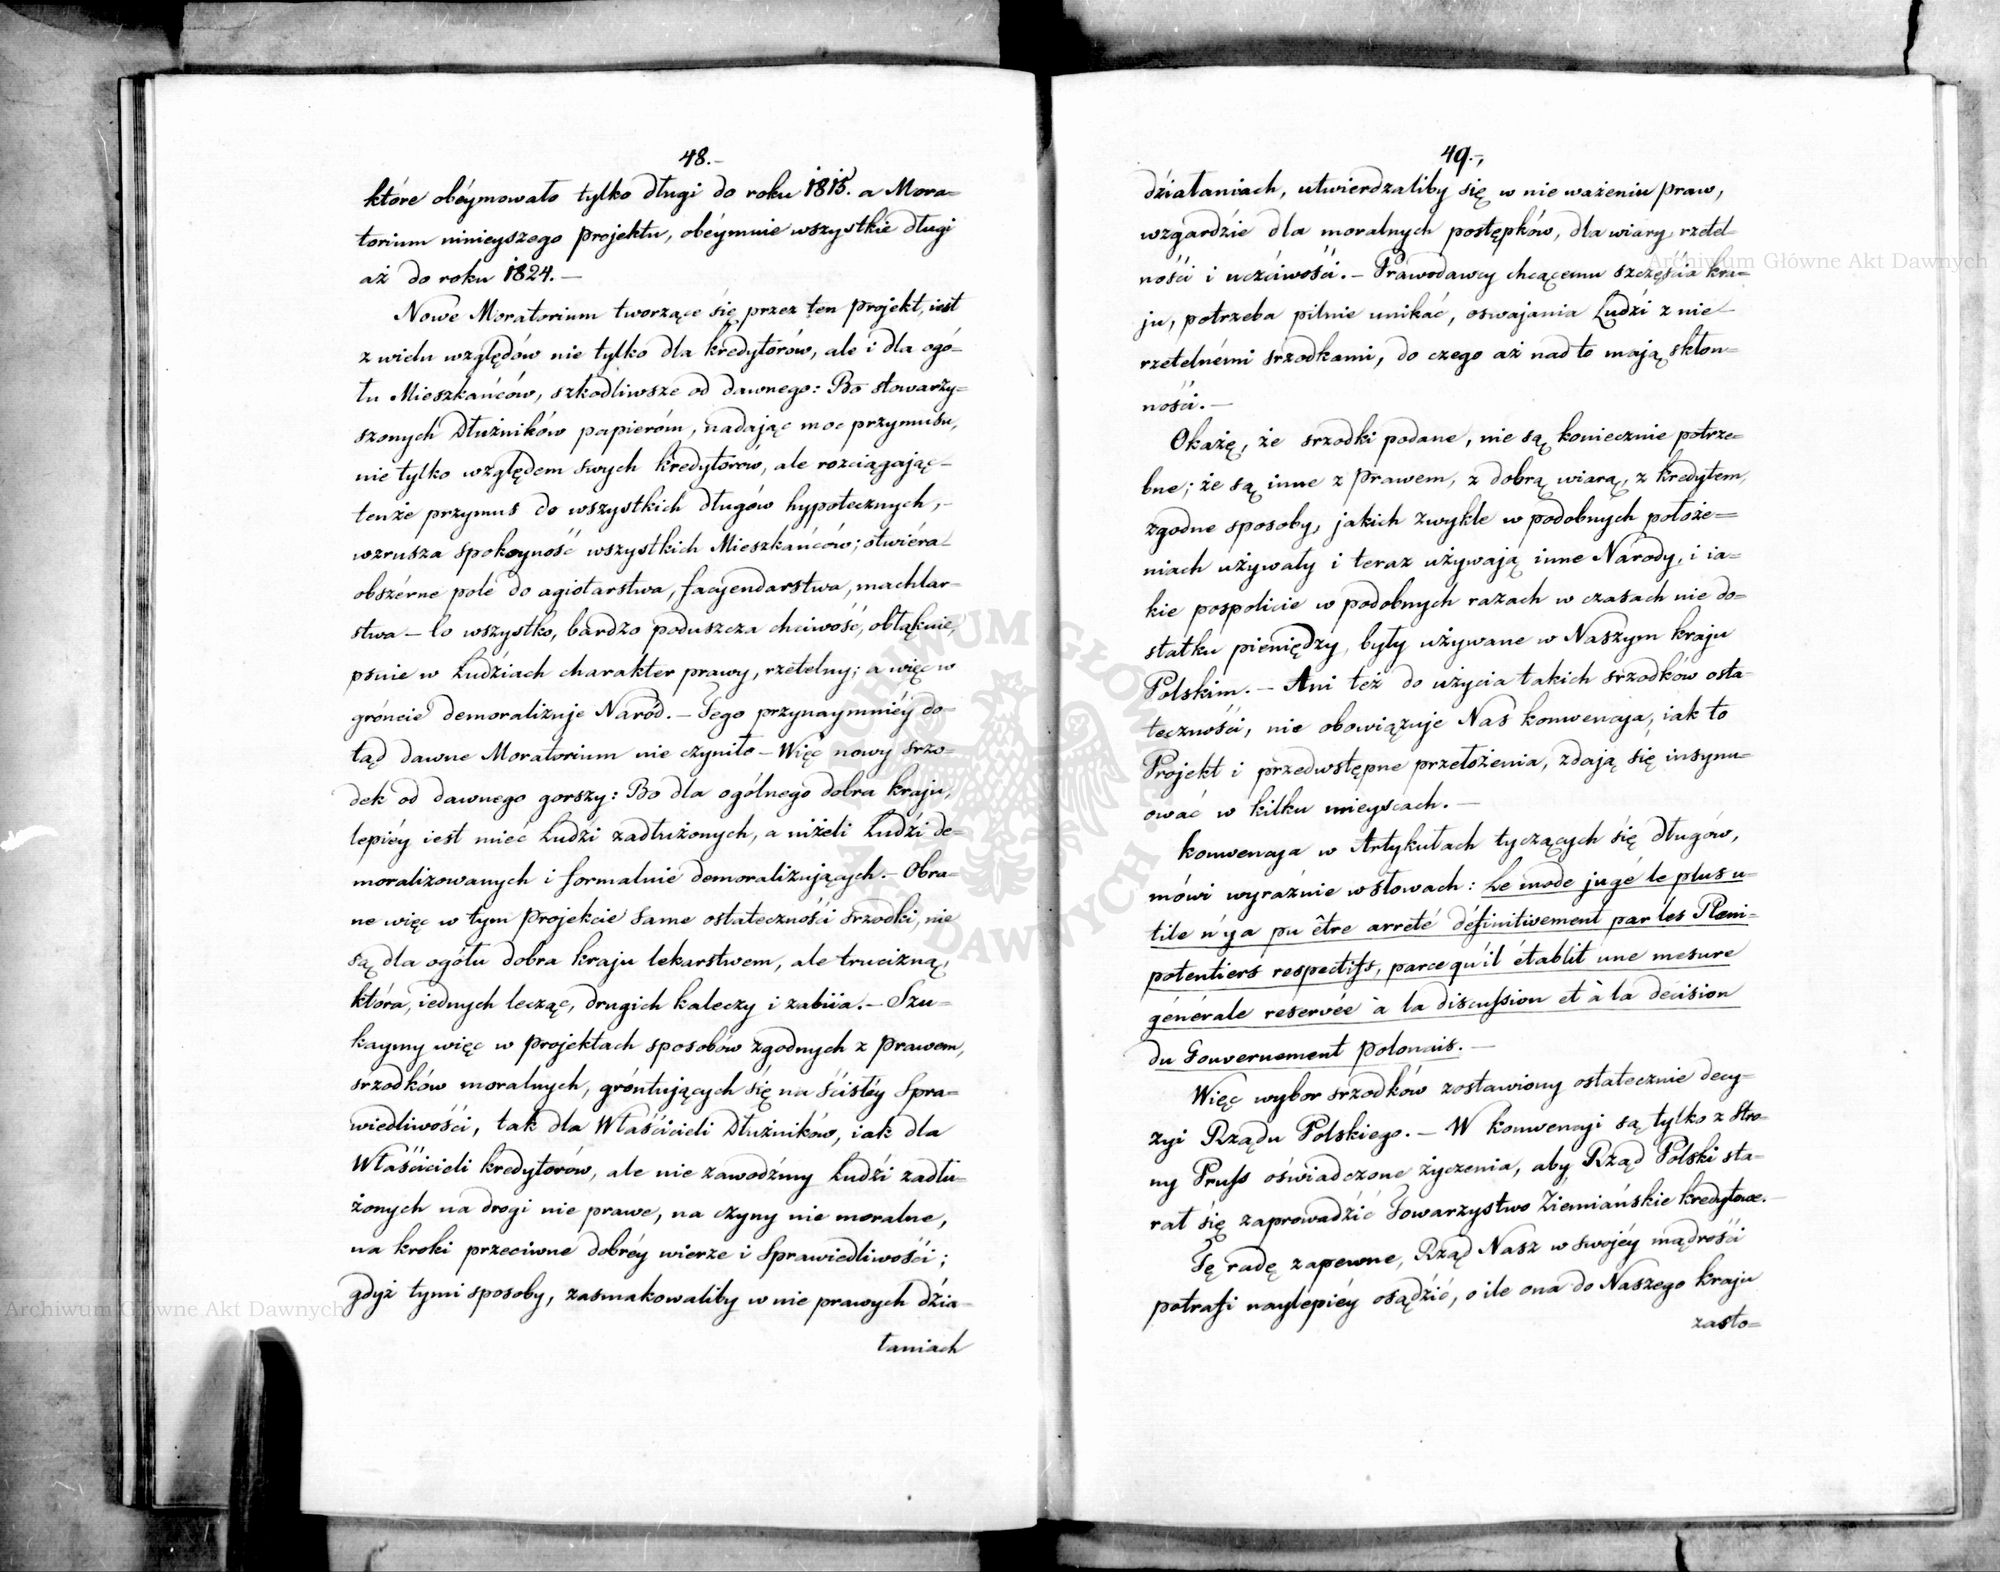 48.-
które obéymowało tylko długi do roku 1815. a Mora=
torium ninieyszego projektu, obéymuie wszystkie długi
aż do roku 1824.-
Nowe Moratorium tworzące się przez ten projekt, iest
z wielu względów nie tylko dla kredytorów, ale i dla ogó-
łu Mieszkańców, szkodliwsze od dawnego: Bo stowarzy=
szonych Dłużników papieróm, nadając moc przymusu,
nie tylko względem swych kredytorów, ale rozciągając-
tenże przymus do wszystkich długów hypotecznych,-
wzrusza spokoyność wszystkich Mieszkańców; otwiéra-
obszérne pole do agiotarstwa, facyendarstwa, machlar-
stwa- Co wszystko, bardzo poduszcza chciwość, obłąkuie,
psuie w Ludziach charakter prawy, rzetelny; a więc w
gróncie demoralizuje Naród.- Tego przynaymniéy do-
tąd dawne Moratorium nie czyniło- Więc nowy srzo-
dek od dawnego gorszy: Bo dla ogólnego dobra kraju,
lepiéy iest mieć Ludzi zadłużonych, a niżeli Ludzi de-
moralizowanych i formalnie demoralizujących.- Obra-
ne więc w tym projekcie same ostateczności srzodki, nie
są dla ogółu dobra kraju lekarstwem, ale trucizną,
która, iednych lecząc, drugich kaleczy i zabiia.- Szu-
kaymy więc w projektach sposobów zgodnych z prawem,
srzodków moralnych, gróntujących się na ścisłéy Spra-
wiedliwości, tak dla Właścicieli Dłużników, iak dla
Właścicieli kredytorów, ale nie zawodźmy Ludzi zadłu-
żonych na drogi nie prawe, na czyny nie moralne,
na kroki przeciwne dobréy wierze i Sprawiedliwości;
gdyż tymi sposoby, zasmakowaliby w nie prawych dzia-
łaniach
49.-
działaniach, utwierdzaliby się w nie ważeniu praw,
wzgardzie dla moralnych postępków, dla wiary, rzetel-
ności i uczciwości.- Prawodawcy chcącemu szczęścia kra=
ju, potrzeba pilnie unikać, oswajania Ludzi z nie-
rzetelnémi srzodkami, do czego aż nadto mają skłon-
ności.-
Okażę, że srzodki podane, nie są koniecznie potrze=
bne; że są inne z prawem, z dobrą wiarą, z kredytem,
zgodne sposoby, jakich zwykle w podobnych położe=
niach używały i teraz używają inne Narody, i ia=
kie pospolicie w podobnych razach w czasach nie do=
statku pieniędzy, były używane w Naszym kraju
Polskim.- Ani też do użycia takich srzodków osta-
teczności, nie obowiązuje Nas konwencya, iak to
Projekt i przedwstępne przełożenia, zdają się insynu-
ować w kilku mieyscach.-
Konwencya w Artykułach tyczących się długów,
mówi wyraźnie w słowach: Le mode jugé le plus u-
tile n'ÿa pu être arreté définitivement par les Pleni-
potentiers respectifs, parcequ'il établit une mesure
générale reservée à la discussion et à la decision
du Gouvernement polonais.-
Więc wybor srzodków zostawiony ostatecznie decy-
zyi Rządu Polskiego.- W konwencyi są tylko z Stro-
ny Pruss oświadczone życzenia, aby Rząd Polski sta-
rał się zaprowadzić Towarzystwo Ziemiańskie kredytowe.-
Tę radę zapewne, Rząd Nasz w swojéy mądrości
potrafi naylepiéy osądzić, o ile ona do Naszego kraju
zasto=
Archiwum Główne Akt Dawnych
Archiwum Główne Akt Dawnych
ARCHIWUM GŁÓWNE AKT DAWNYCH